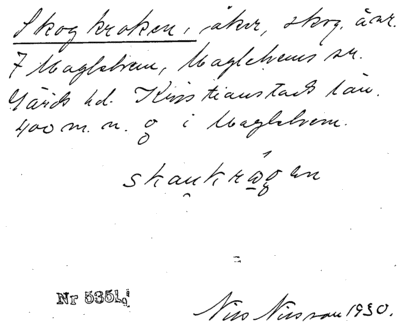 Skogkroken, åker, skog. å nr.
7 Maglehem, Maglehems sn.
Gärds hd. Kristianstads län.
400 m. n. g i Maglehem.
skaukrågen
Nr 5351
Nils Nilsson 1930.